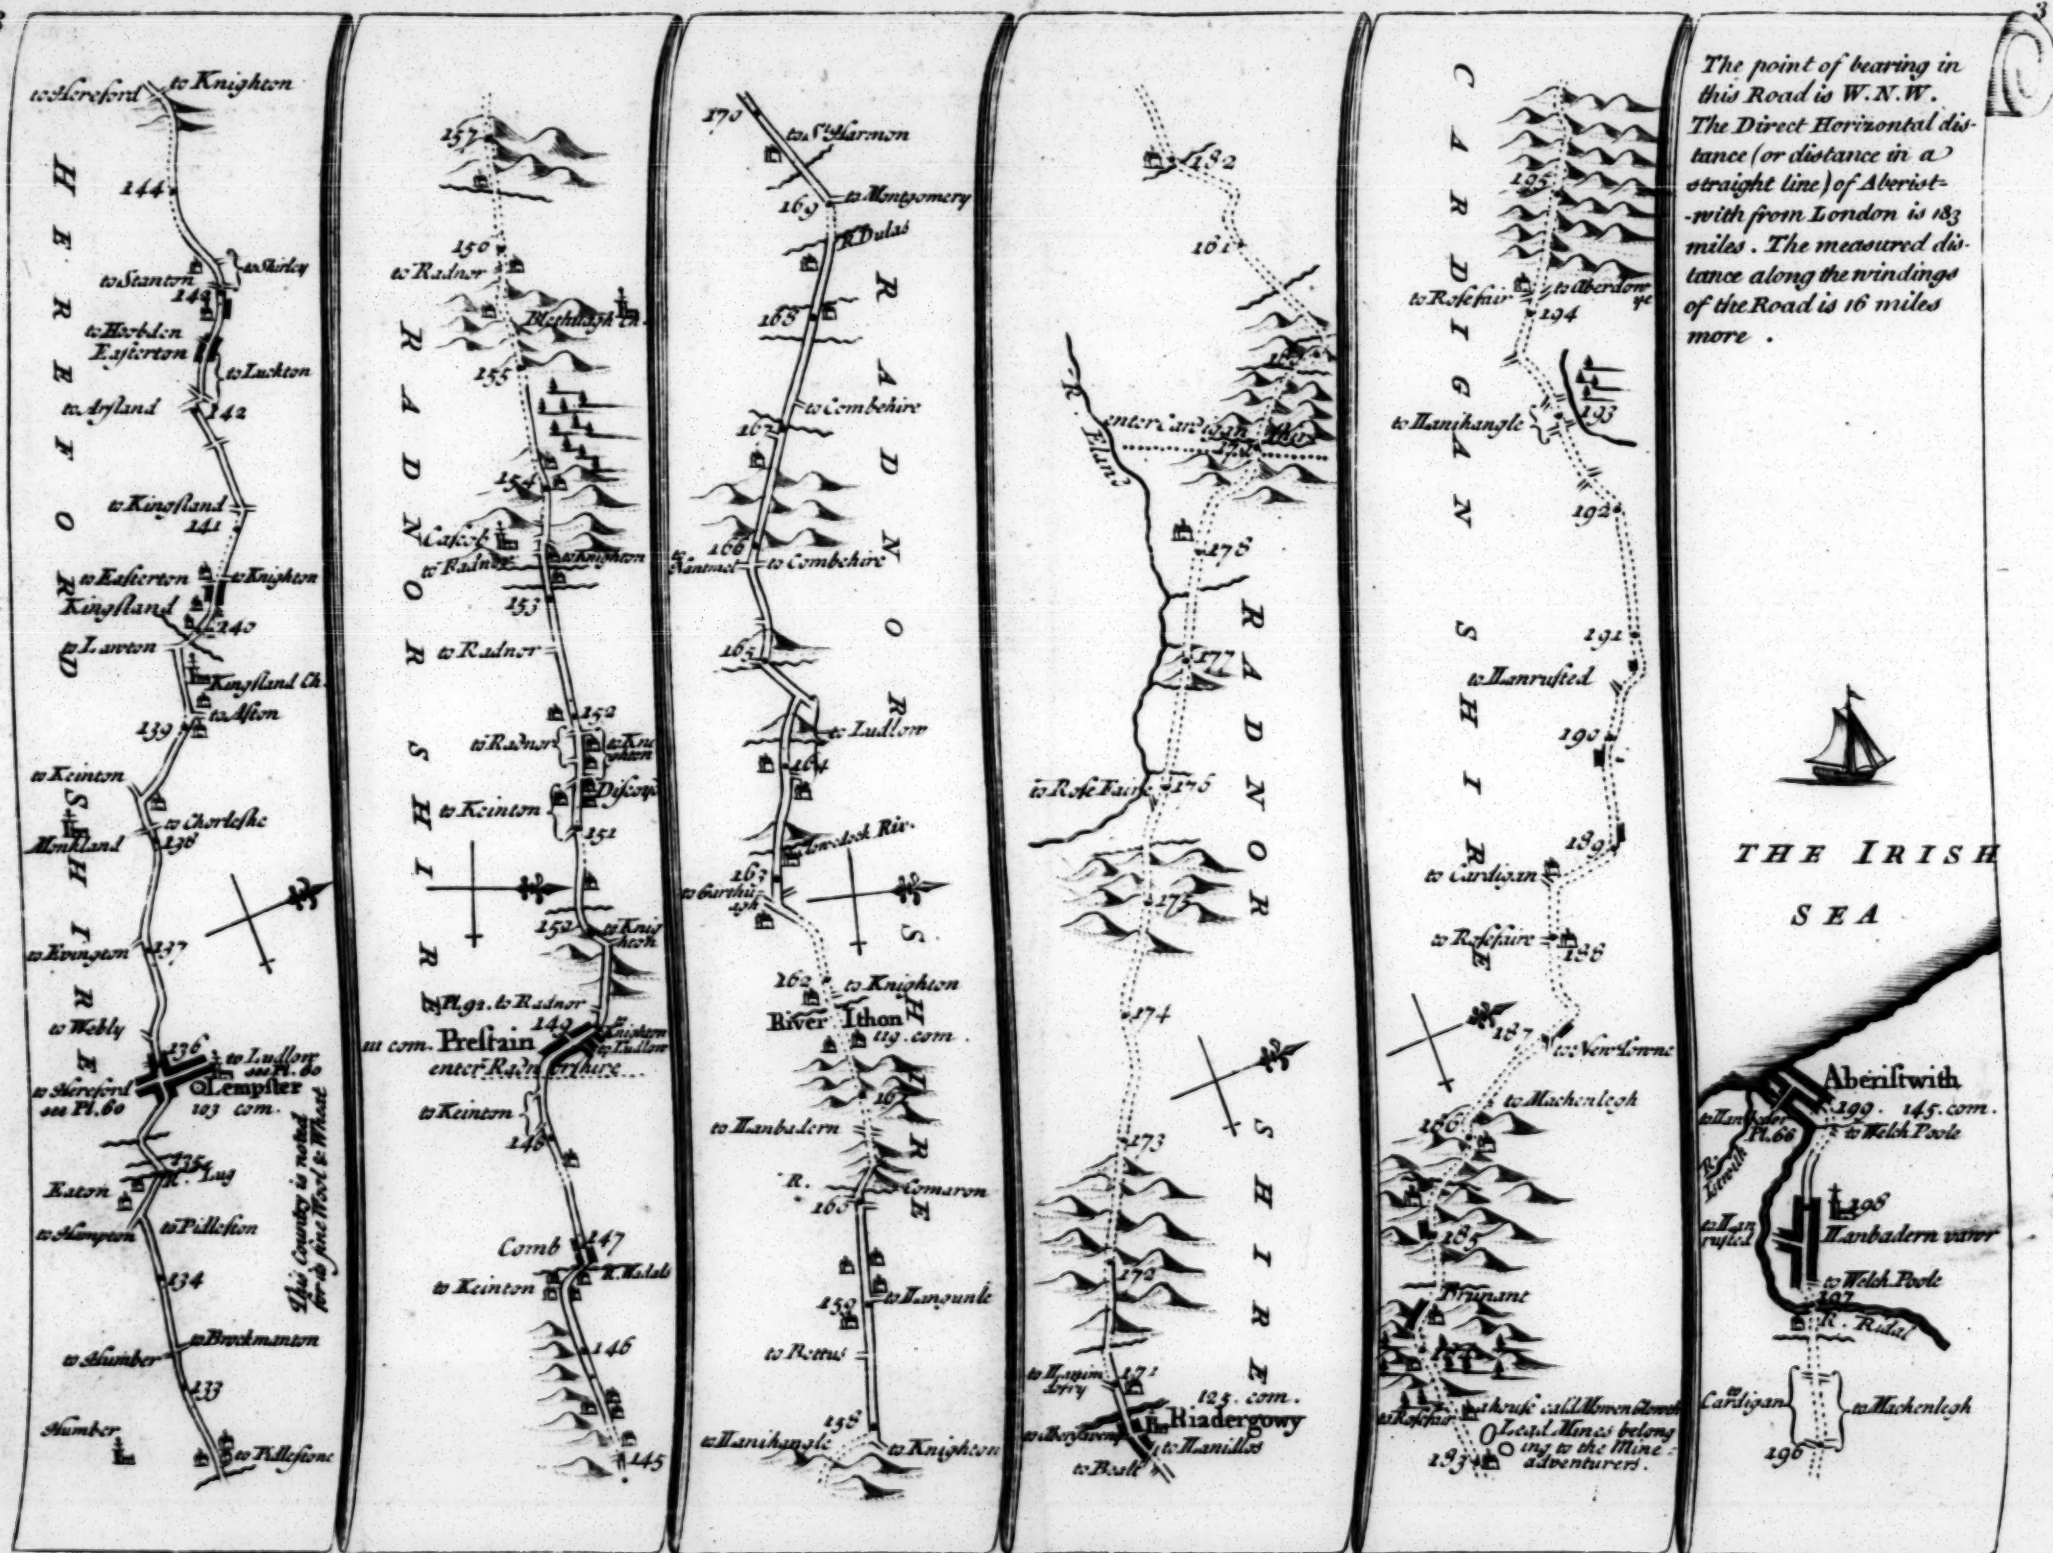 to Hereford
to Knighton
144
to Stanton
to Shirley
to Hoobden
Easterton
to Luckton
to Arsland
142
to Kingsland
141
to Easterton
to Knighton
Kingsland
140
to Lawton
Kingsland Ch.
to Aston
139
to Keinton
to Chorleske
Monkland
138
to Evington
137
to Webly
136
to Ludlow
see Pl. 60
to Hereford
see Pl. 60
Lempster
103 com.
135
R. Lug
Eaton
to Hampton
to Pidleston
134
This Country is noted
for its fine Wool & Wheat
to Brockmanton
to Humber
133
Humber
to Pidlestone
HEREFORD SHIRE
157
150
to Radnor
Blethvagh Ch.
155
154
Cascob
to Radnor
to Knighton
153
to Radnor
152
to Radnor
to Kni
ghton
Discoyd
to Keinton
151
150
to Knig
hton
Pl. 92. to Radnor
149
Prestain
111 com.
to Knighton
to Ludlow
enter Radnorshire
to Keinton
148
Comb
147
to Keinton
R. Wadals
146
145
RADNOR SHIRE
170
to St. Harmon
169
to Montgomery
R. Dulas
168
to Combehire
167
166
to Nantmel
to Combehire
165
to Ludlow
164
Clowedock Riv.
163
to Garthu
agh
162
to Knighton
River Ithon
119. com.
161
to Llanbadern
R. Comaron
160
to Llangunle
159
to Bettus
158
to Llanihangle
to Knighton
RADNOR SHIRE
182
181
180
R. Eland
enter Cardigan Shire
179
178
177
to Rose Faire
176
175
174
173
172
171
125. com.
Riadergowy
to Llanillos
to Bealt
RADNOR SHIRE
195
to Rosefair
to Aberdow
ye
194
to Llanihangle
193
192
191
to Llanrusted
190
189
to Cardigan
to Rosefaire
188
187
to New Towne
to Machenlegh
186
185
Brunant
184
to Rosefair
a house cald
Lead Mines belong
ing to the Mine=
adventurers.
183
CARDIGAN SHIRE
3
The point of bearing in
this Road is W.N.W.
The Direct Horizontal dis-
tance (or distance in a
straight line) of Aberist=
-with from London is 183
miles. The measured dis-
tance along the windings
of the Road is 16 miles
more.
THE IRISH
SEA
Aberistwith
199. 145. com.
to Llanbeder
Pl. 66
to Welch Poole
R. Istwith
198
to Llan
rusted
Llanbadern vawr
to Welch Poole
197
R. Ridal
to
Cardigan
to Machenlegh
196